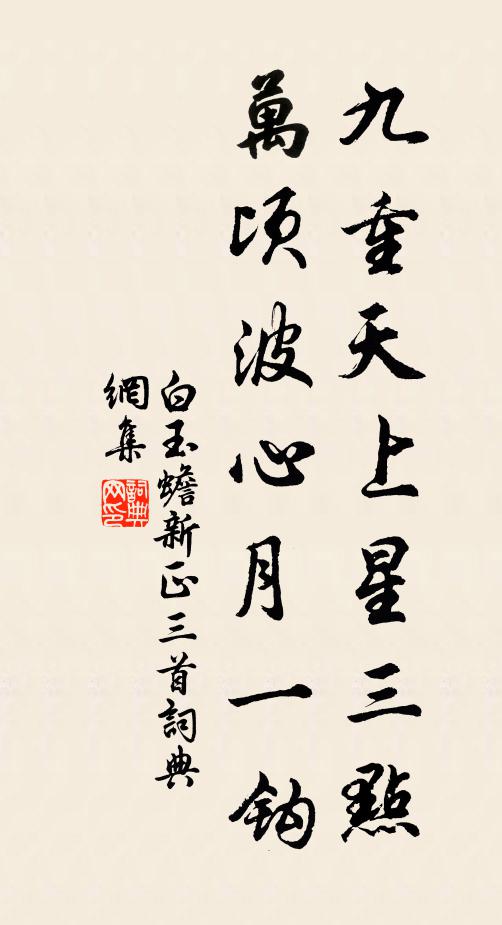 九重天上星三點
萬頃波心月一鈎
白玉蟾新正三首詞典
網集
詞典
網印